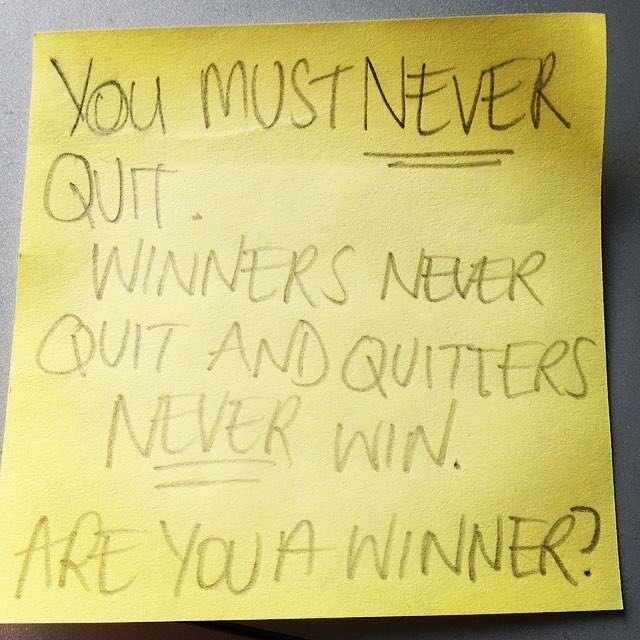 YOU MUST NEVER
QUIT.
WINNERS NEVER
QUIT AND QUITTERS
NEVER WIN.
ARE YOU A WINNER?